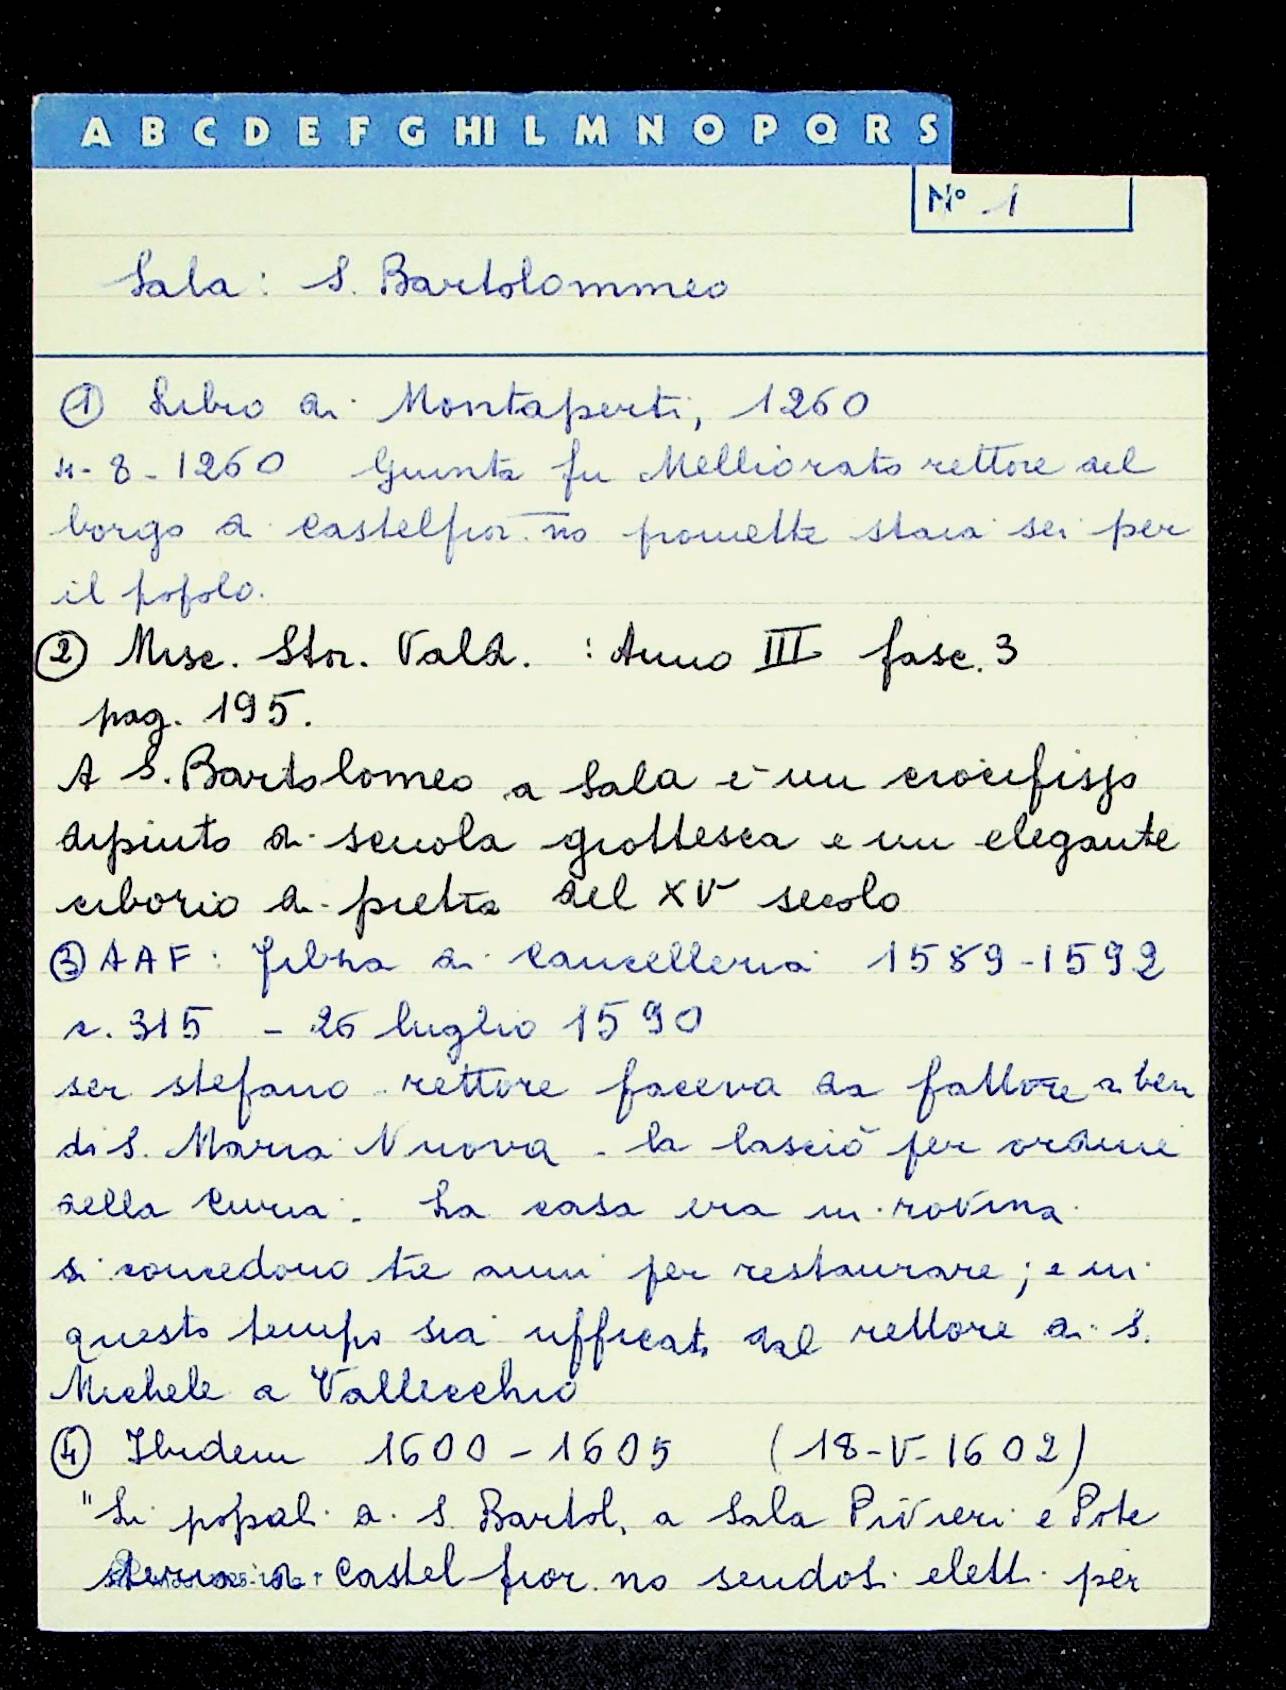 A B C D E F G HI L M N O P Q R S
N° 1
Sala: S. Bartolommeo
① Libro di Montaperti, 1260
4-8-1260 Giunta fu Melliorato rettore del
borgo di Castelfiorino promette staia sei per
il popolo.
② Misc. Stor. Vald. : Anno III fasc. 3
pag. 195.
A S. Bartolomeo a Sala è un crocifisso
dipinto di scuola grottesca e un elegante
ciborio di pietra del XV secolo
③ AAF: Filza di Cancelleria 1589-1592
c. 315 - 26 luglio 1590
ser Stefano rettore faceva da fattore a beni
di S. Maria Nuova - la lasciò per ordine
della Curia. La casa era in rovina
si concedono tre anni per restaurare; e in
questo tempo sia ufficiata dal rettore di S.
Michele a Vallecchio
④ Ibidem 1600-1605 (18-V-1602)
"Li popoli di S. Bartol. a Sala Pivieri e Pote
steria di Castel fiorino sendosi eletti per